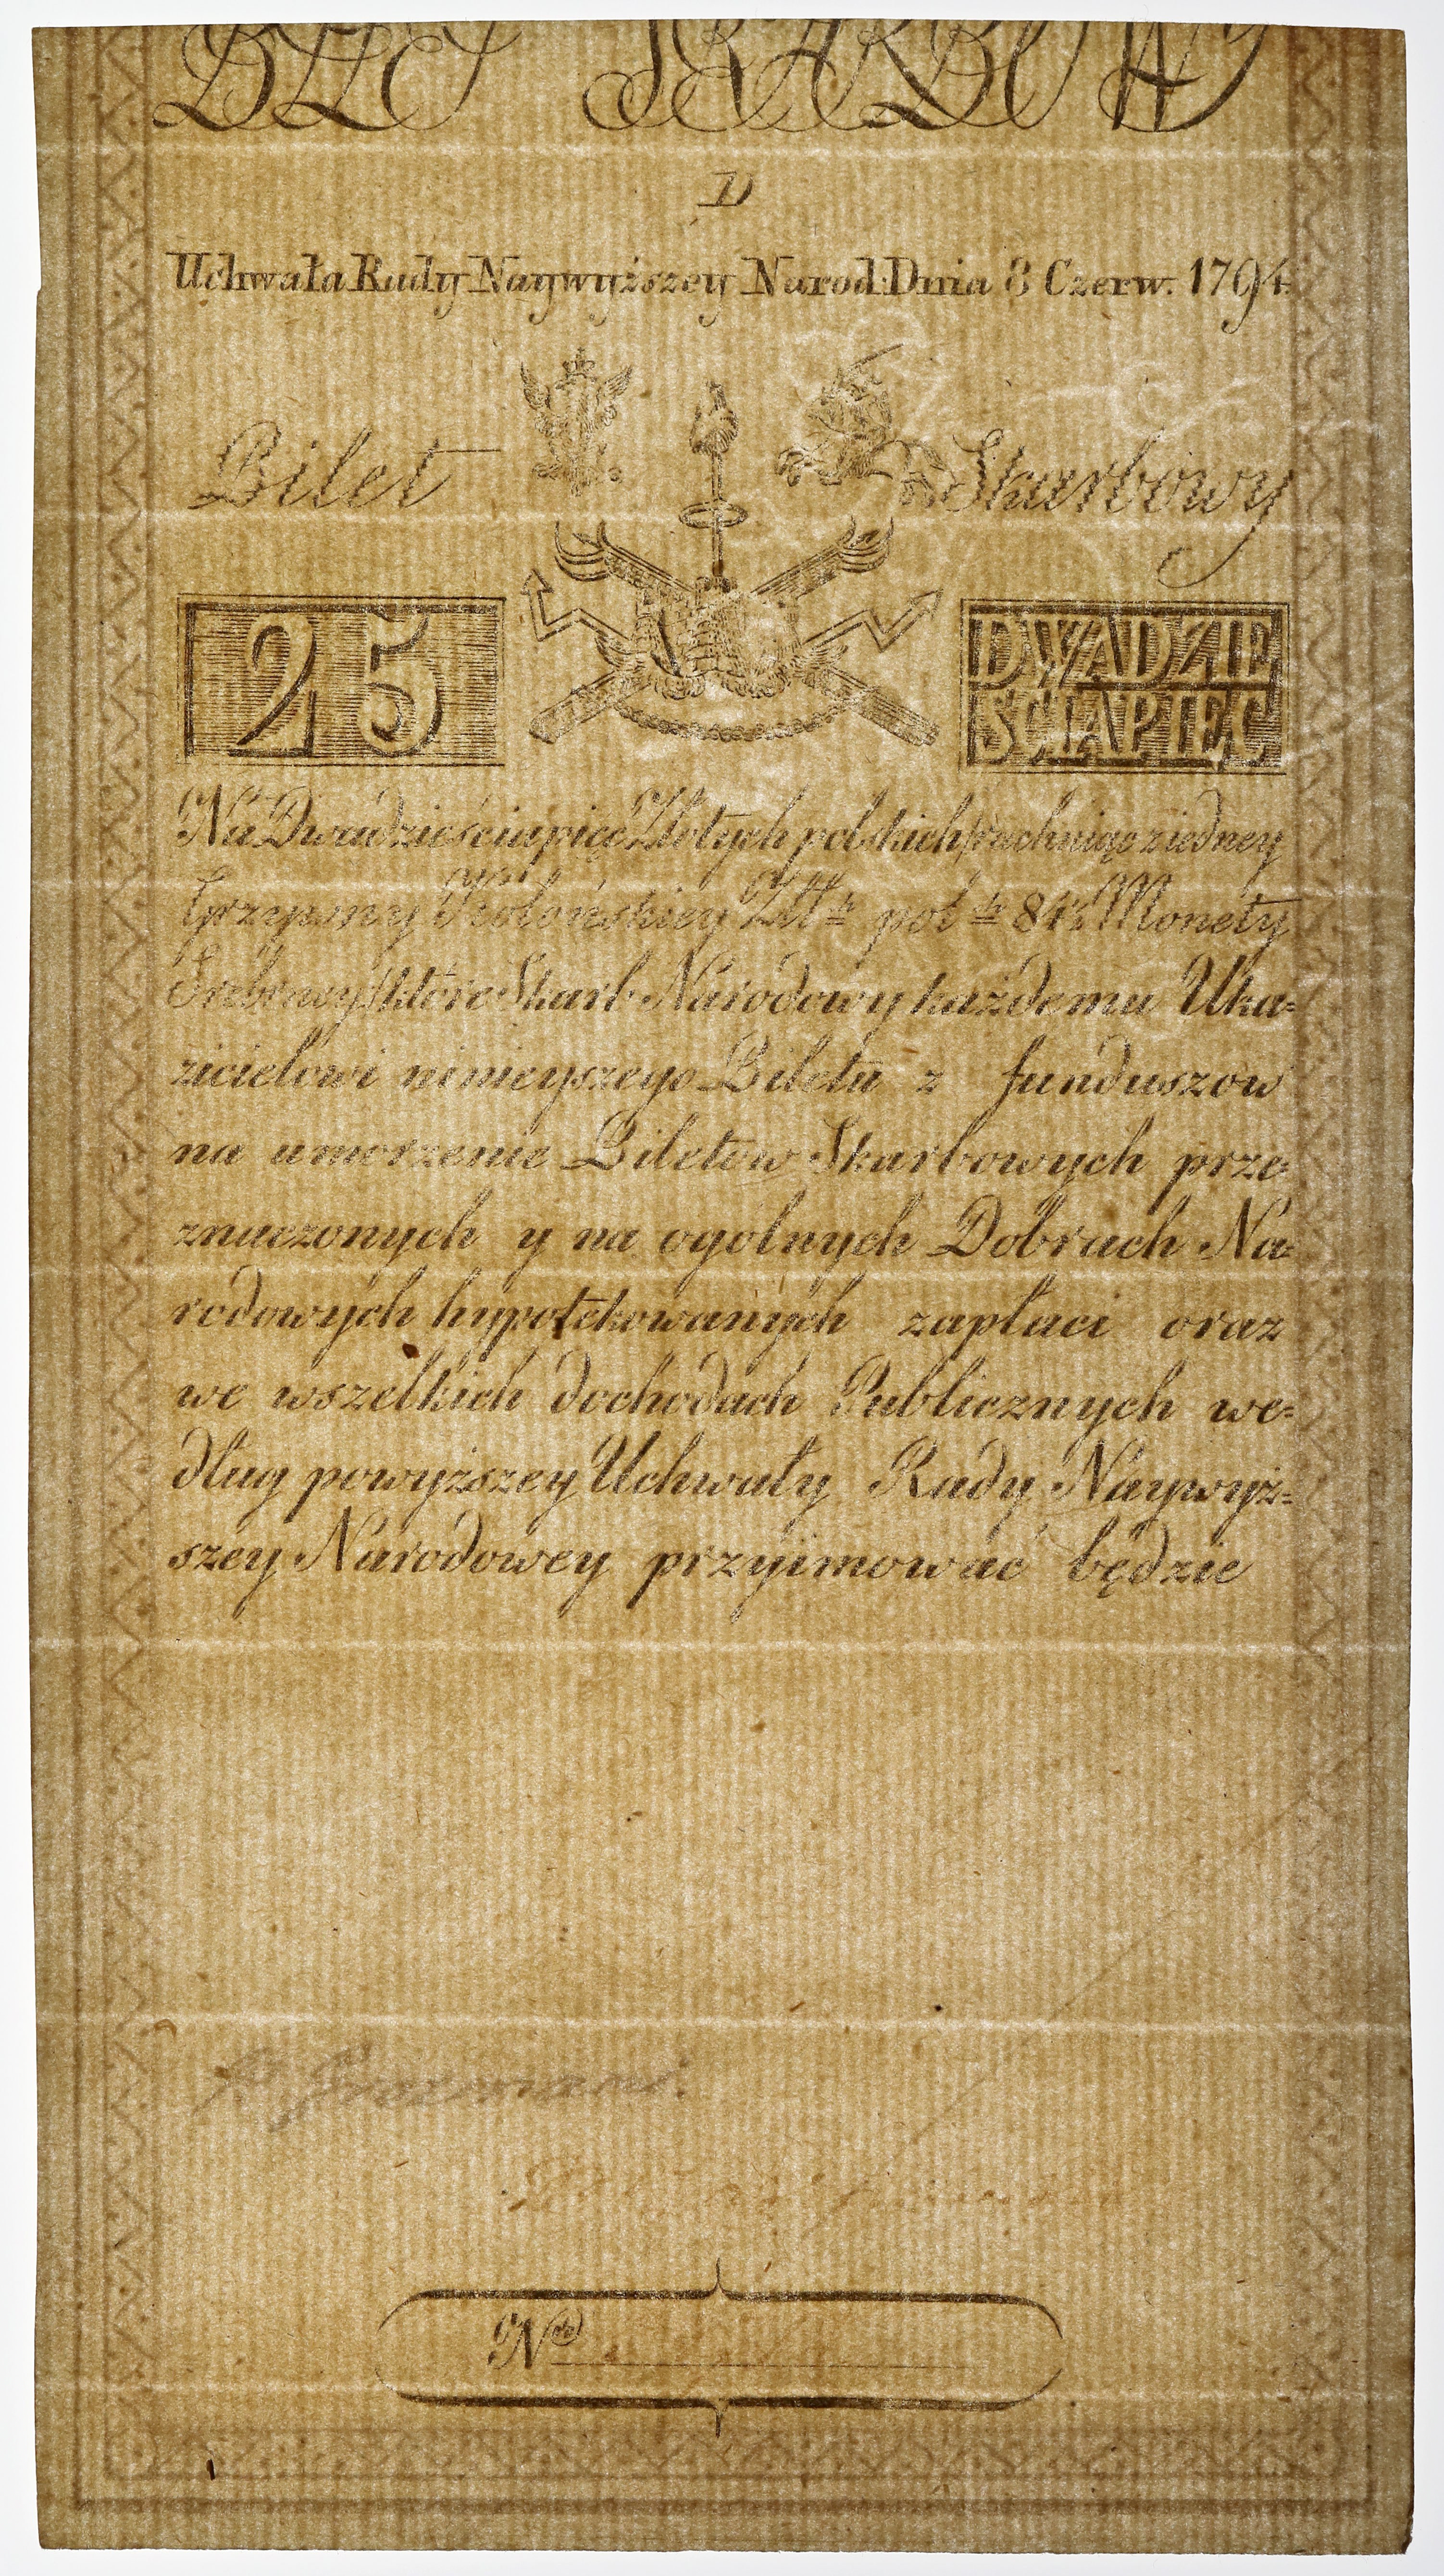 BILET SKARBOWY
D
Uchwała Rady Naywyższey Narod: Dnia 8 Czerw. 1794.
Bilet Skarbowy
25
DWADZIE
SCIAPIĘC
Na Dwadzieścia pięć Złotych polskich /rachuiąc z iedney
Grzywny Kolońskiey Złłch pol ch 84½ Monety
Srebrney/ które Skarb Narodowy każdemu Uka=
zicielowi ninieyszego Biletu z funduszow
na umorzenie Biletow Skarbowych prze
znaczonych y na ogólnych Dobrach Na=
rodowych hypotekowanych zapłaci oraz
we wszelkich dochodach Publicznych we=
dług powyższey Uchwały Rady Naywyż=
szey Narodowey przyimować będzie
Nro